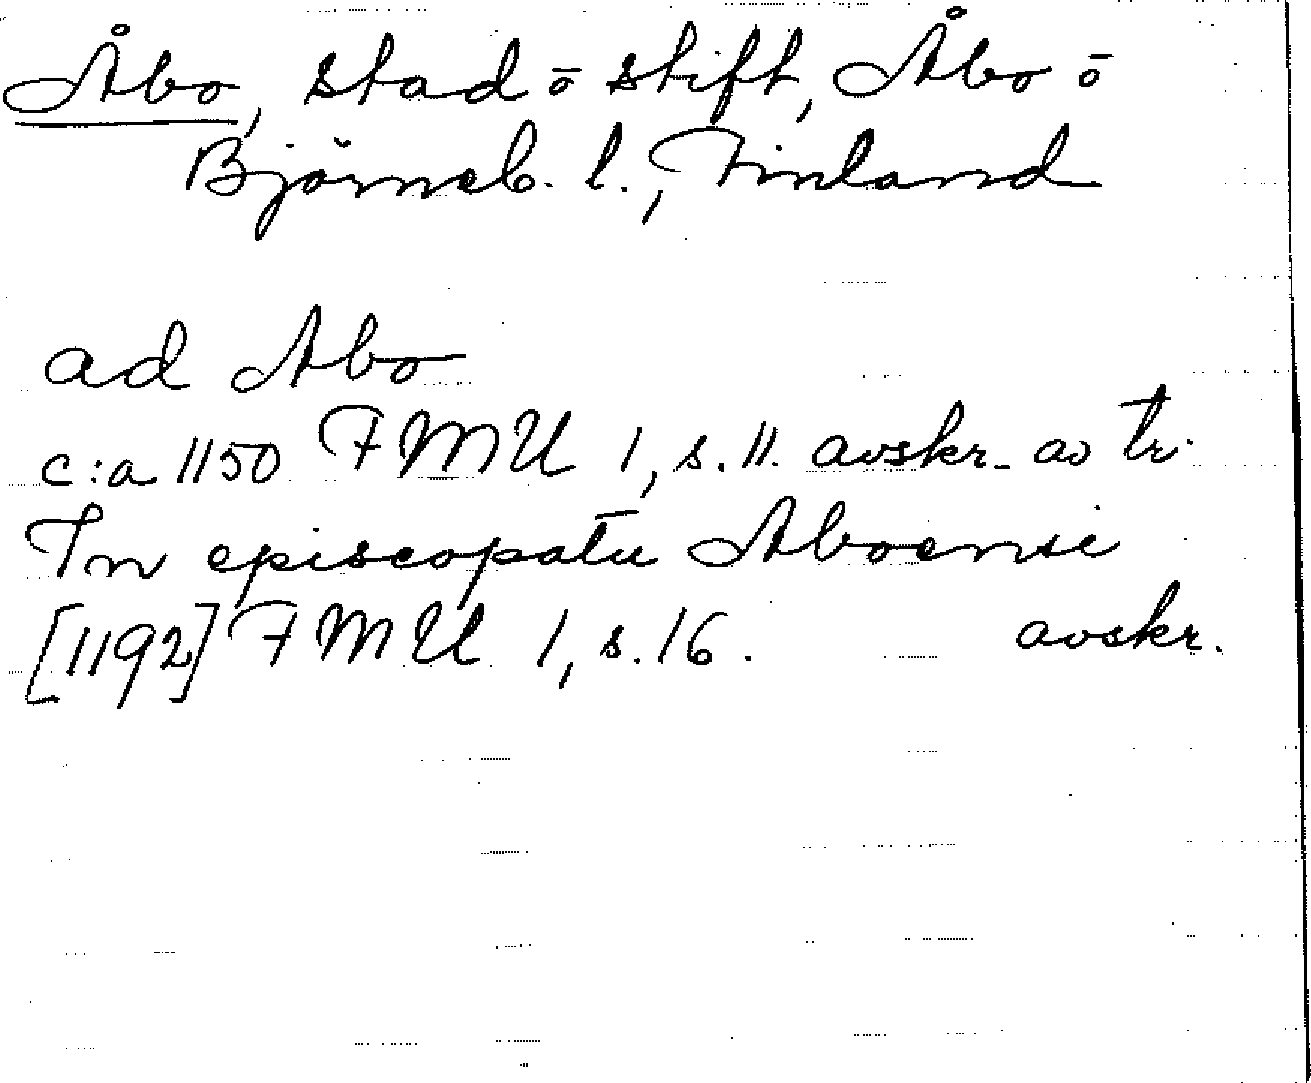 Åbo, stad ō stift, Åbo ō
Björneb. l., Finland
ad Abo
c:a 1150 FMU 1, s. 11. avskr. av tr.
In episcopatu Aboensi
[1192] FMU 1, s. 16. avskr.